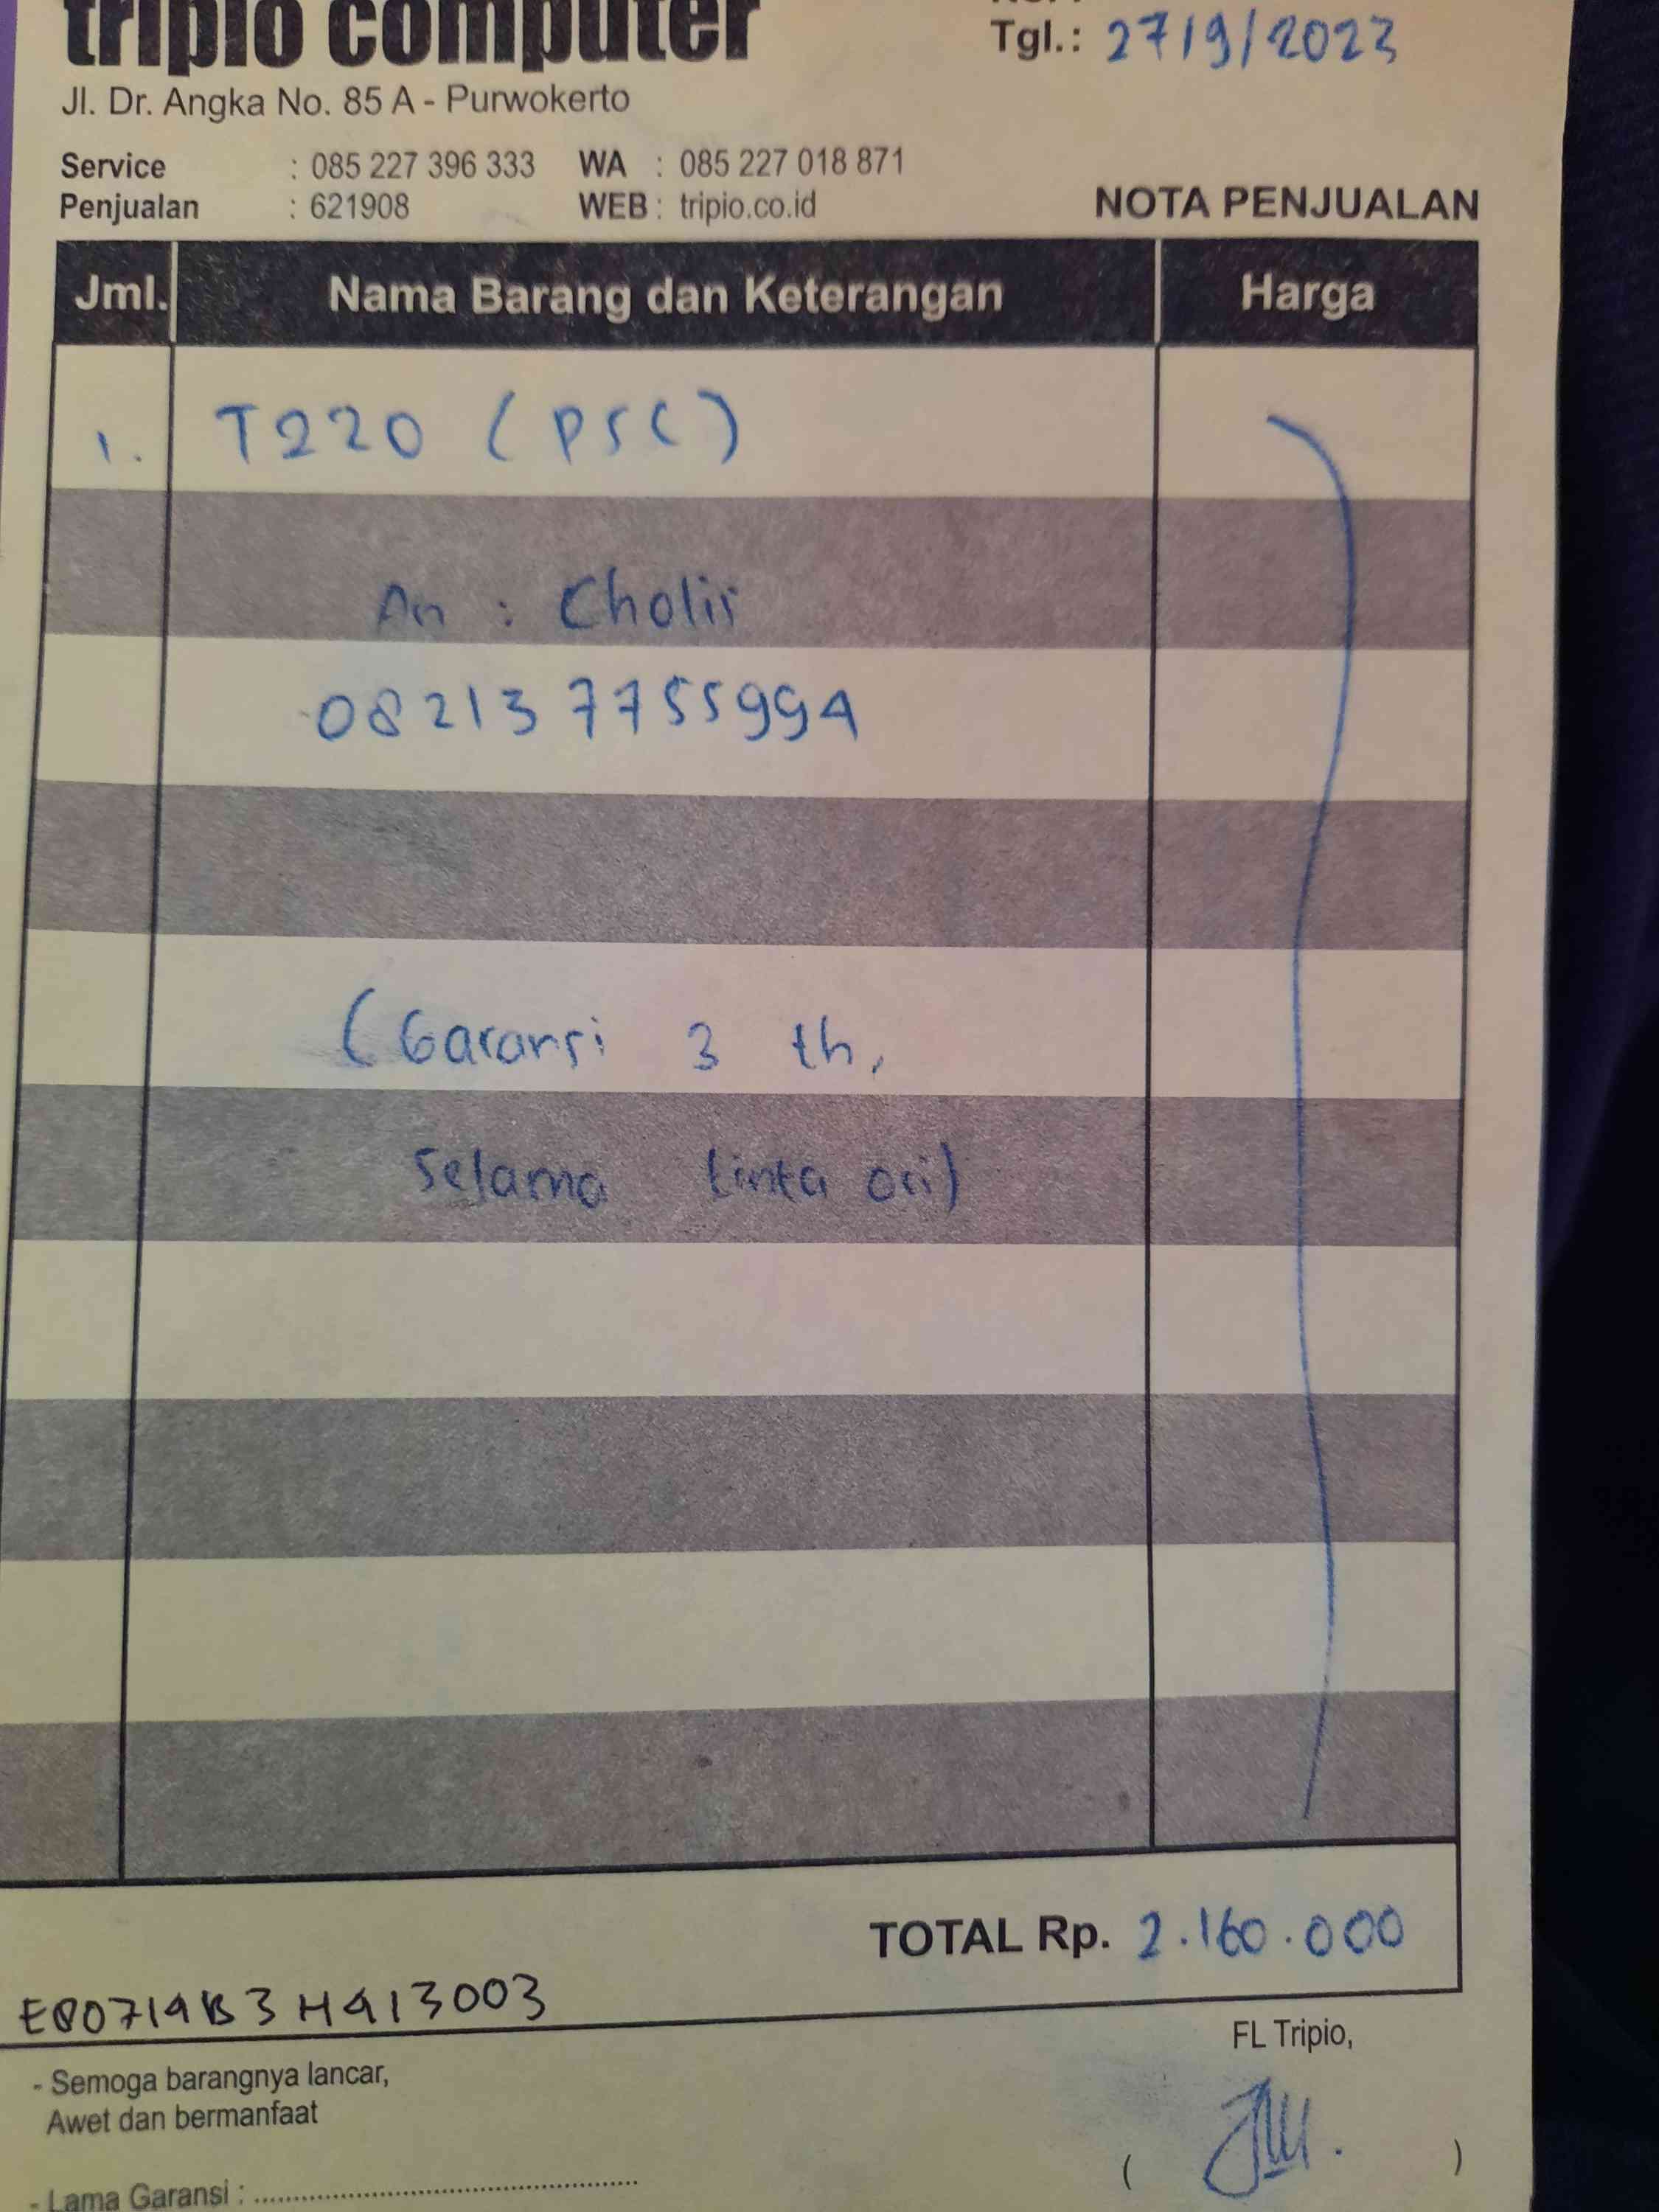 tripio computer
Tgl.: 27/9/2023
Jl. Dr. Angka No. 85 A - Purwokerto
Service : 085 227 396 333 WA : 085 227 018 871
Penjualan : 621908 WEB : tripio.co.id
NOTA PENJUALAN
Jml. Nama Barang dan Keterangan Harga
1. T220 (PSC)
An : Cholis
082137755994
(Garansi 3 th,
Selama tinta ori)
TOTAL Rp. 2.160.000
E80719B3H413003
FL Tripio,
- Semoga barangnya lancar,
Awet dan bermanfaat
( )
- Lama Garansi : ....................